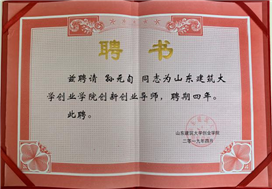 聘书
兹聘请 孙元旬 同志为山东建筑大
学创业学院创新创业导师，聘期四年。
此聘。
山东建筑大学创业学院
二零一九年四月